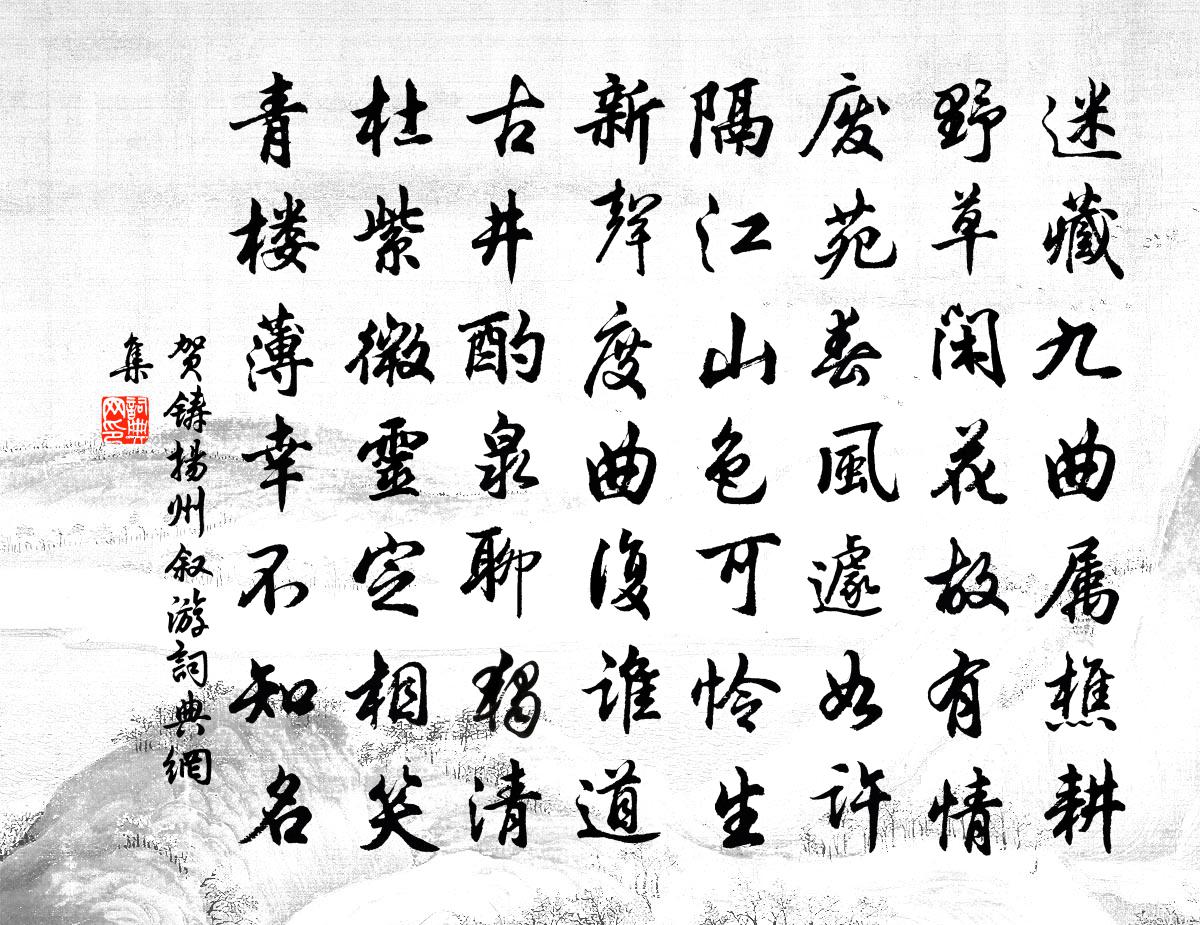 迷藏九曲属樵耕
野草闲花故有情
废苑春風遽如许
隔江山色可怜生
新聲度曲復谁道
古井酌泉聊獨清
杜紫微靈定相笑
青楼薄幸不知名
贺铸揚州叙游詞典網
集
詞典
网印